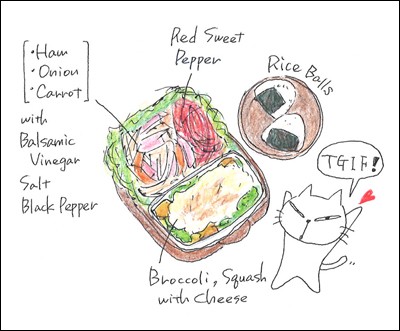 ・Ham
・Onion
・Carrot
with
Balsamic
Vinegar
Salt
Black Pepper
Red Sweet
Pepper
Rice Balls
TGIF!
Broccoli, Squash
with Cheese